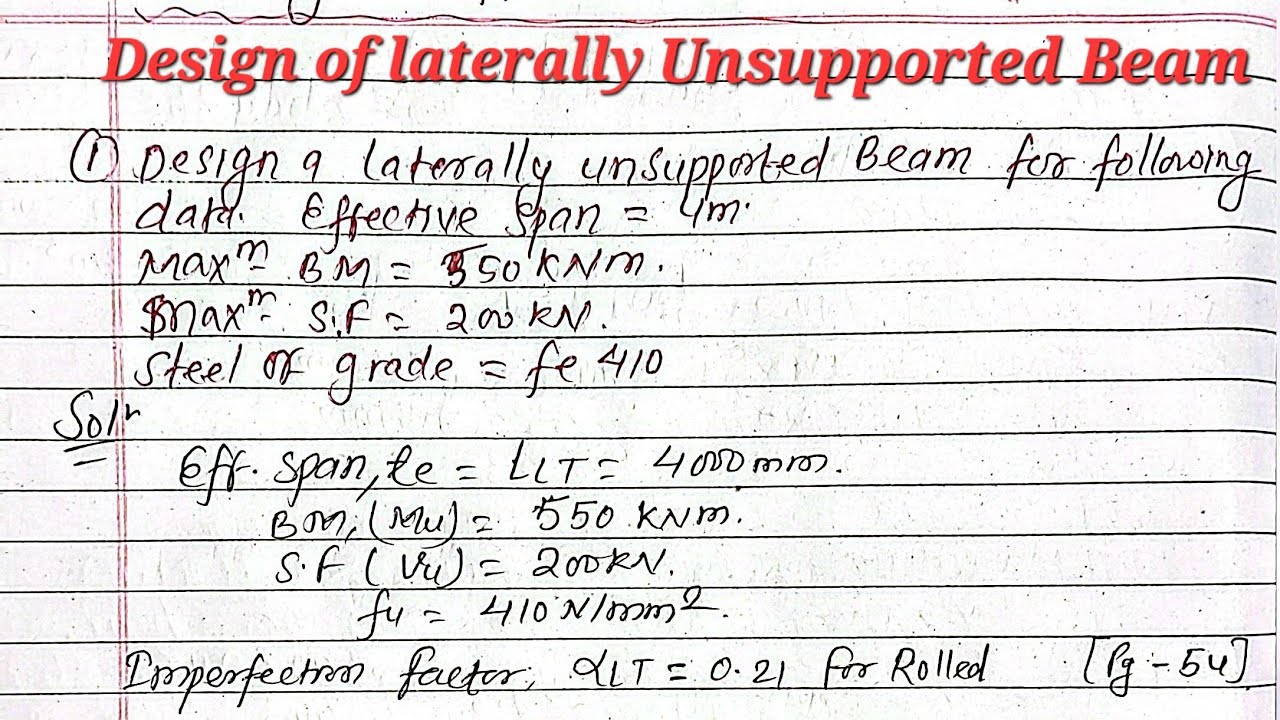 Design of laterally Unsupported Beam
① Design a laterally unsupported Beam for following
data. Effective span = 4m.
Maxᵐ BM = 550 KNm.
Maxᵐ S.F = 200 KN.
Steel of grade = fe 410
Solⁿ
Eff. span, le = LLT = 4000mm.
BM, (Mu) = 550 KNm.
S.F (Vu) = 200KN.
fu = 410 N/mm²
Imperfection factor, αLT = 0.21 for Rolled [Pg - 54]